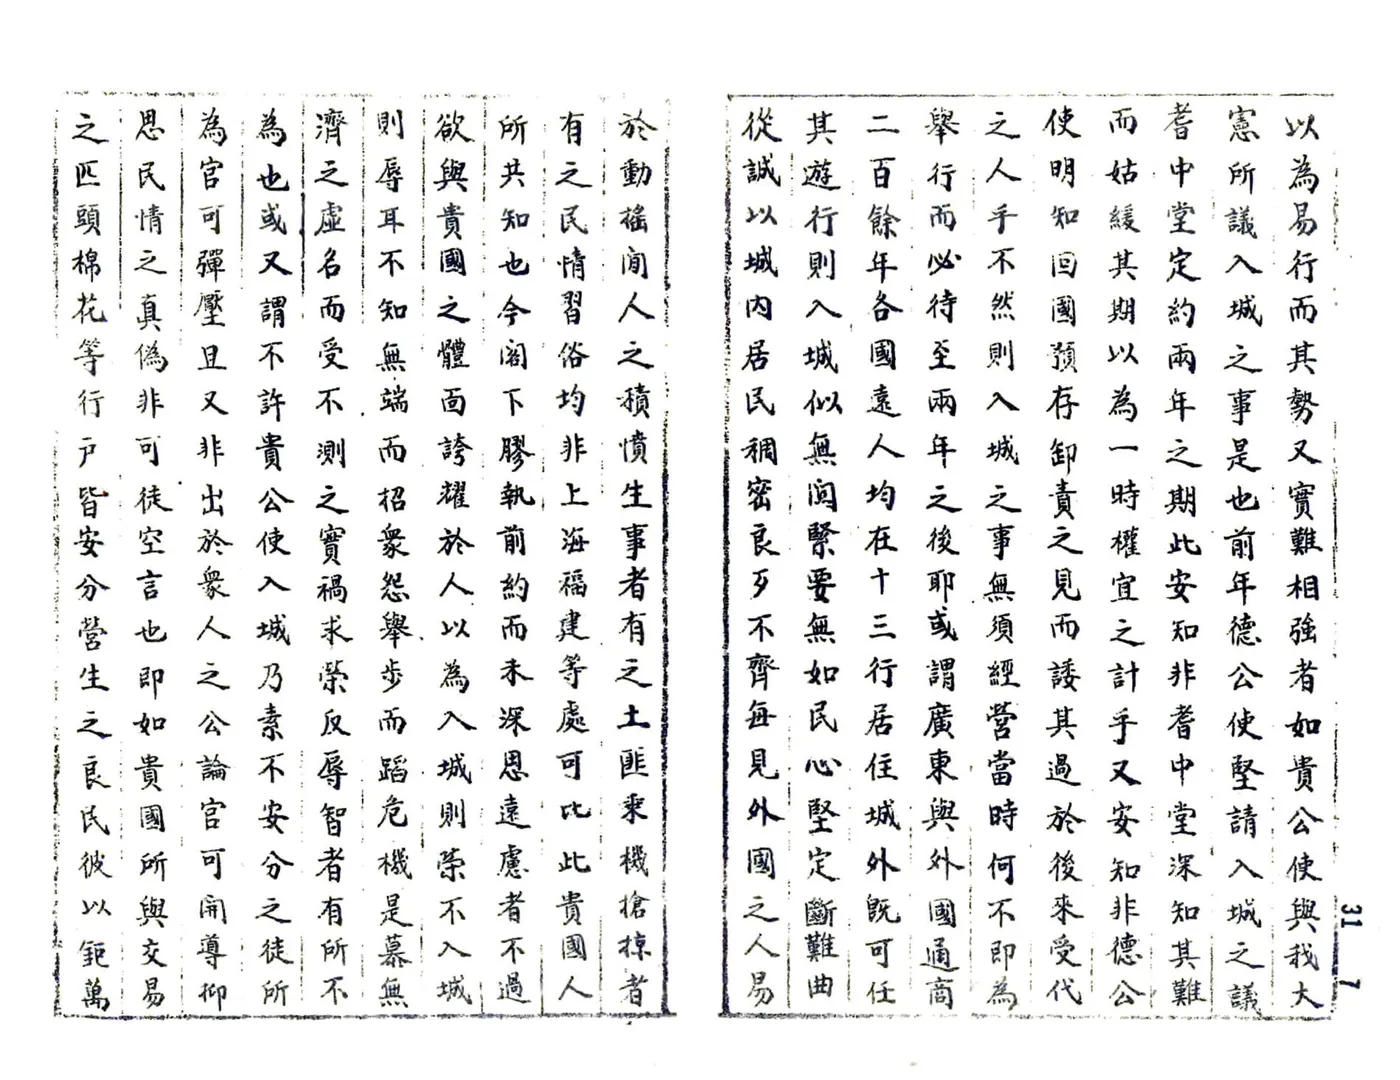 以為易行而其勢又實難相強者如貴公使與我大
憲所議入城之事是也前年德公使堅請入城之議
耆中堂定約兩年之期此安知非耆中堂深知其難
而姑緩其期以為一時權宜之計乎又安知非德公
使明知回國預存卸責之見而諉其過於後來受代
之人乎不然則入城之事無須經營當時何不即為
舉行而必待至兩年之後耶或謂廣東與外國通商
二百餘年各國遠人均在十三行居住城外既可任
其遊行則入城似無関緊要無如民心堅定斷難曲
從誠以城內居民稠密良歹不齊每見外國之人易
於動搖閒人之積憤生事者有之土匪乘機搶掠者
有之民情習俗均非上海福建等處可比此貴國人
所共知也今閣下膠執前約而未深思遠慮者不過
欲與貴國之體面誇耀於人以為入城則榮不入城
則辱耳不知無端而招衆怨舉步而蹈危機是慕無
濟之虛名而受不測之實禍求榮反辱智者有所不
為也或又謂不許貴公使入城乃素不安分之徒所
為官可彈壓且又非出於衆人之公論官可開導抑
思民情之真偽非可徒空言也即如貴國所與交易
之匹頭棉花等行戶皆安分營生之良民彼以鉅萬
31
7